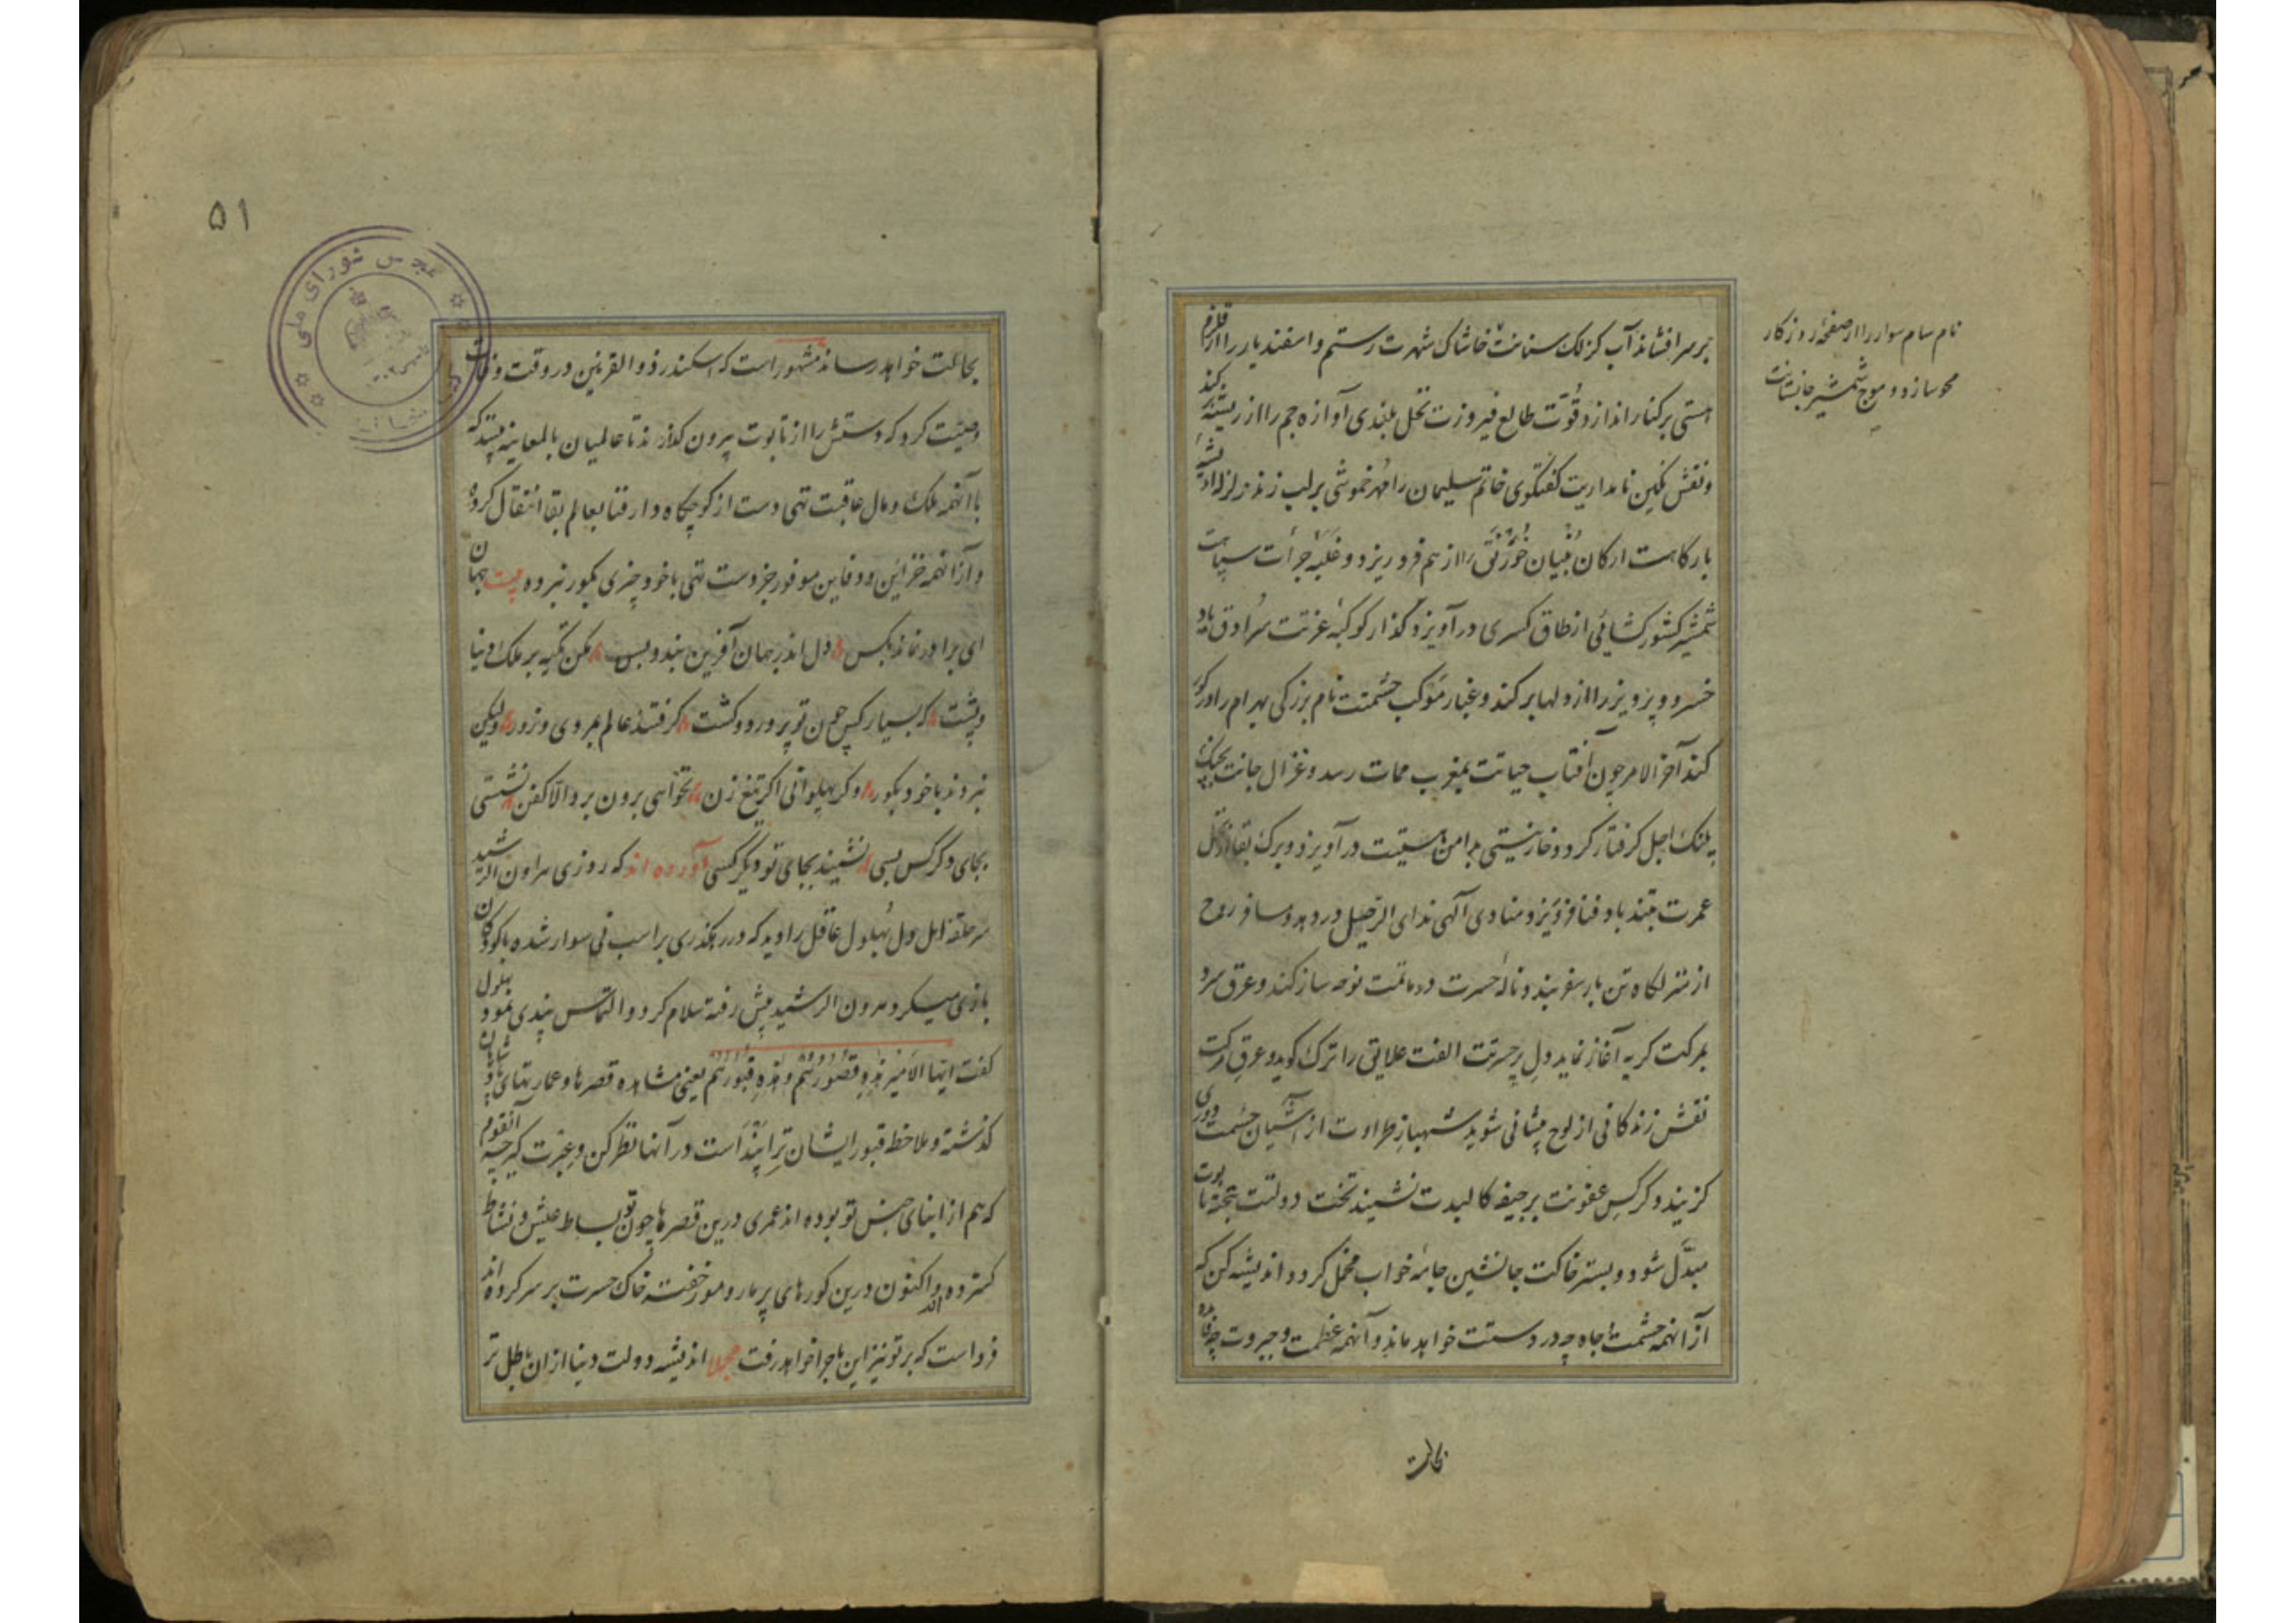 بر سر افشاند آب کزلک سنانت خاشاک شهرت رستم و اسفندیار را از قلزم
هستی بر کنار اندازد و قوّت طالع فیروزت نخل بلندی آوازه جم را از ریشه کند
و نقش نگین نامداریت گفتگوی خاتم سلیمان را مهر خموشی بر لب زند زلزله
بارگاهت ارکان بنیان خورنق را از هم فرو ریزد و غلبه جرأت سپاهت
شمشیر کشور کشائی از طاق کسری در آویزد و گذار کوکبه عزتت سرادق
خسرو و پرویز را از دلها برکند و غبار موکب حشمتت نام بزرکی بهرام را در گور
کند آخر الامر چون آفتاب حیاتت بمغرب ممات رسد و غزال جانت بچنگ
پلنک اجل کرفتار کردد و خار نیستی بدامن هستیت در آویزد و برک بقا از نخل
عمرت بتند باد فنا فرو ریزد و منادی آلهی ندای الرحیل در دهد و مسافر روح
از منزلکاه تن بار سفر بندد و ناله حسرت در ماتمت نوحه ساز کند و عرق سرد
بمرکت کریه آغاز نماید و دل پر حسرتت الفت علایق را ترک کوید و عرق مرکت
نقش زندکانی از لوح پیشانی شوید شهباز طراوت از آشیان چشمت دوری
کزیند و کرکس عفونت بر جیفه کالبدت نشیند تخت دولتت بتخته تابوت
مبدّل شود و بستر خاکت جانشین جامه خواب مخمل کردد اندیشه کن که
از آنهمه حشمت و جاه چه در دستت خواهد ماند و آنهمه عظمت و جبروت چه فایده
نام سام سوار را از صفحه روزکار
محو سازد و موج شمشیر جانستانت
بحالت
۵۱
مجلس شورای ملی
بحالت خواهد رساند مشهور است که اسکندر ذو القرنین در وقت وفات
وصیّت کرد که دستش را از تابوت بیرون کذارند تا عالمیان بالمعاینه بینند که
با آنهمه ملک و مال عاقبت تهی دست از کوچگاه دار فنا بعالم بقا انتقال کرده
و از آنهمه خزاین و دفاین موفور جز دست تهی با خود چیزی بکور نبرده بیت جهان
ای برادر نماند بکس دل اندر جهان آفرین بند و بس مکن تکیه بر ملک دنیا
و پشت که بسیار کس چون تو پرورد و کشت کرفتند عالم بمردی و زور ولیکن
نبردند با خود بکور و کر پهلوانی اکر تیغ زن نخواهی برون برد الّا کفن نشستی
بجای دگر کس بسی نشیند بجای تو دیکر کسی آورده اند که روزی هرون الرشید
سر حلقه اهل دل بهلول عاقل را دید که در رهکذری بر اسب نی سوار شده با کودکان
بازی میکرد هرون الرشید پیش رفته سلام کرد و التماس پندی نمود بهلول
کفت ایّها الأمیر هذه قصورهم و هذه قبورهم یعنی مشاهده قصرها و عمارتهای پادشاهان
کذشته و ملاحظه قبور ایشان ترا پند است در آنها نظر کن و عبرت کیر چه آنقوم
که هم از ابنای جنس تو بوده اند عمری درین قصرها چون تو بساط عیش و نشاط
کسترده اند و اکنون درین کورهای پر مار و مور خفته خاک حسرت بر سر کرده اند
فرداست که بر تو نیز این ماجرا خواهد رفت مجملا اندیشه دولت دنیا از ان باطل تر